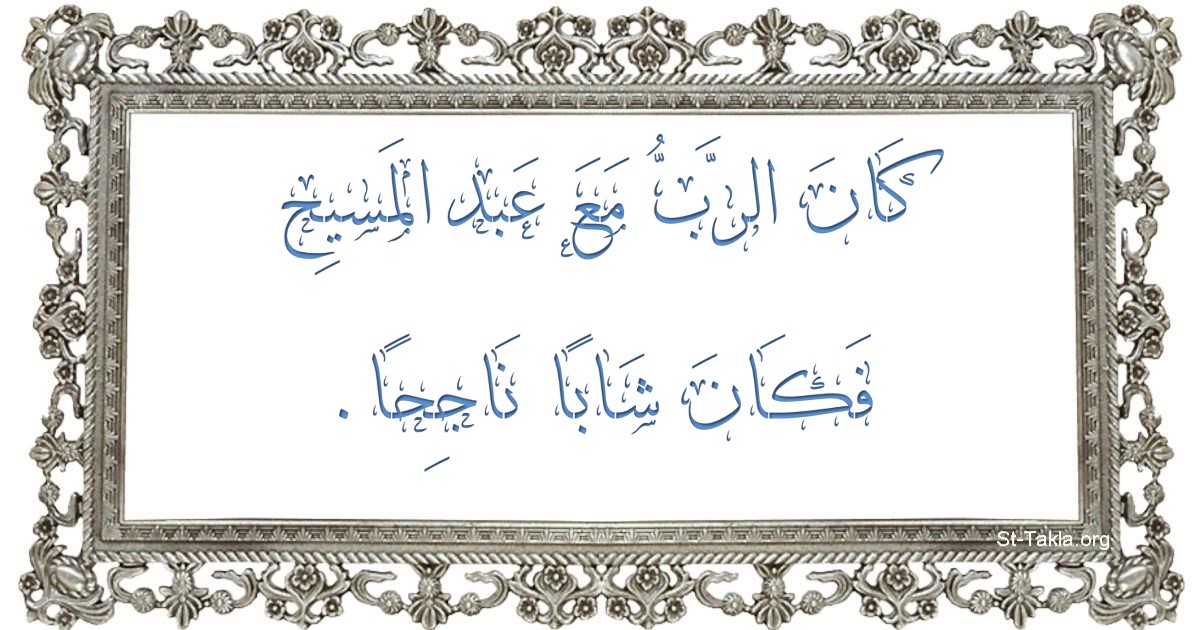 كَانَ الربَّبُّ مَعَ عَبْد الْمَسِيحِ
فَكَانَ شَابًا نَاجِحًا .
St-Takla.org